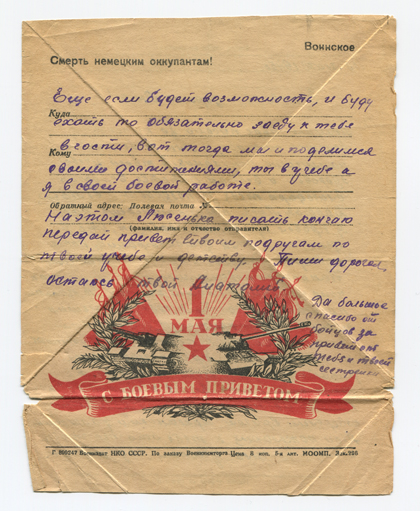 Воинское
Смерть немецким оккупантам!
Еще если будет возможность, и буду
Куда
ехать то обязательно заеду к тебе
в гости, вот тогда мы и поделимся
Кому
своими достижениями, ты в учебе а
я в своей боевой работе.
Обратный адрес: Полевая почта №
На этом писать кончаю
(фамилия, имя и отчество отправителя)
передай привет своим подругам по
твоей учебе и детству. Пиши дорогая,
остаюсь твой Анатолий
1
МАЯ
Да большое
спасибо от
бойцов за
привет от
тебя и твоей
сестренки
С БОЕВЫМ ПРИВЕТОМ
Воениздат НКО СССР. По заказу Военкниготорга Цена 6 коп. МООМП. Зак.